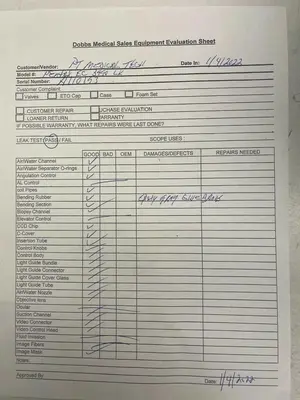 Dobbs Medical Sales Equipment Evaluation Sheet
Customer/Vendor: PT MEDICAL TECH Date In: 1/4/2022
Model #: PENTAX EC 3490 LK
Serial Number:
Customer Complaint
Valves ETO Cap Case Foam Set
CUSTOMER REPAIR PURCHASE EVALUATION
LOANER RETURN WARRANTY
IF POSSIBLE WARRANTY, WHAT REPAIRS WERE LAST DONE?
LEAK TEST: PASS / FAIL SCOPE USES:
GOOD BAD OEM DAMAGES/DEFECTS REPAIRS NEEDED
Air/Water Channel
Air/Water Separator O-rings
Angulation Control
AL Control
Bending Rubber
Bending Section
Biopsy Channel
Elevator Control
CCD Chip
C-Cover
Insertion Tube
Control Knobs
Control Body
Light Guide Bundle
Light Guide Connector
Light Guide Cover Glass
Light Guide Tube
Air/Water Nozzle
Objective lens
Suction Channel
Video Connector
Video Control Head
Fluid Invasion
Image Fibers
Image Mask
Notes:
Approved By Date: 1/4/2022